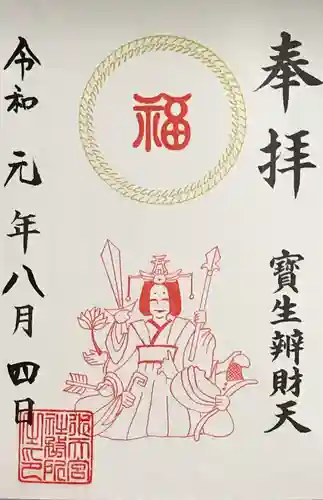 奉拝
寶生辨財天
福
令和元年八月四日